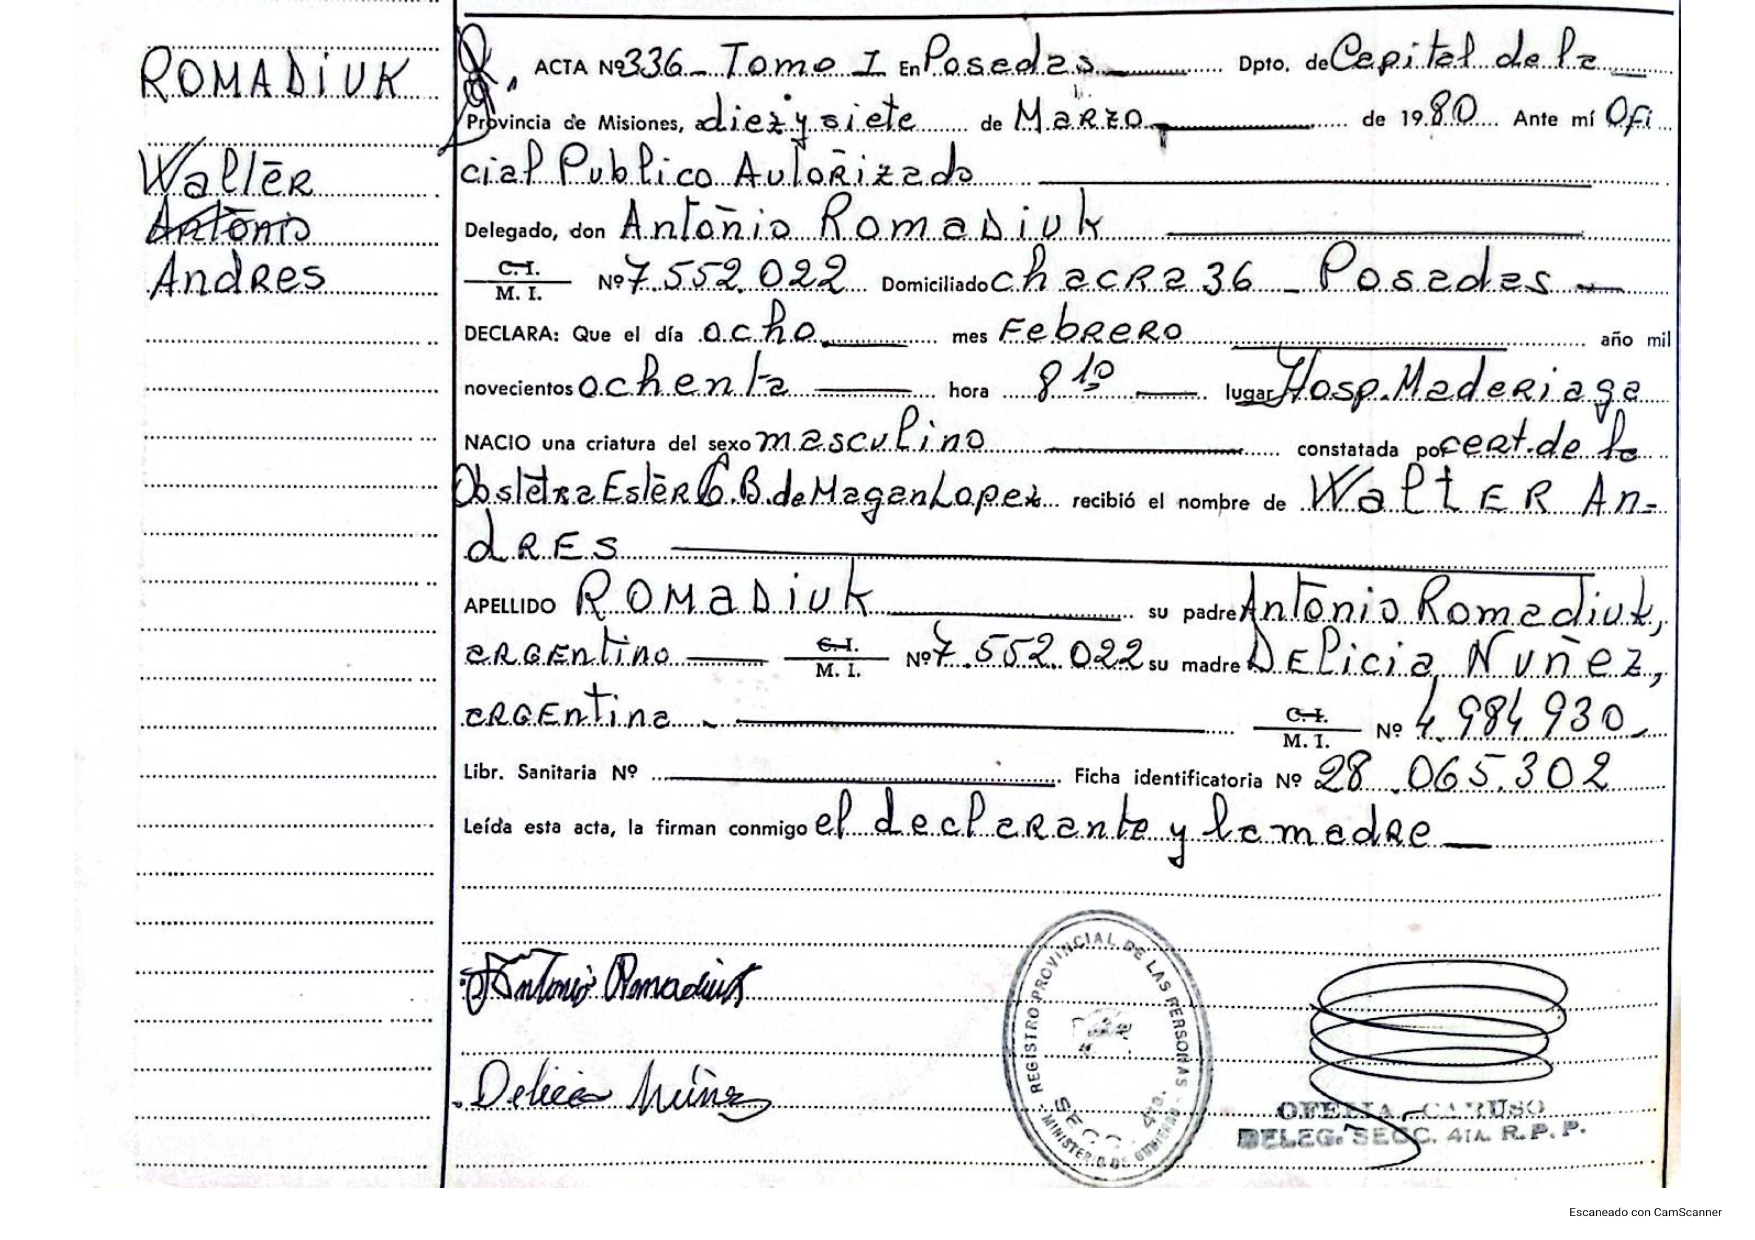 ROMADIUK
Walter
Antonio
Andres
ACTA Nº 336 Tomo I En Posadas Dpto. de Capital de la
Provincia de Misiones, a diez y siete de Marzo de 1980 Ante mí Ofi
cial Publico Autorizado
Delegado, don Antonio Romadiuk
C.I.
M. I. Nº 7.552.022 Domiciliado chacra 36 - Posadas
DECLARA: Que el día ocho mes Febrero año mil
novecientos ochenta hora 8 10 lugar Hosp. Madariaga
NACIO una criatura del sexo masculino constatada por cert. de la
Obstetra Ester C. B. de Magan Lopez recibió el nombre de Walter An-
dres
APELLIDO ROMADIUK su padre Antonio Romadiuk,
argentino C.I. M. I. Nº 7.552.022 su madre Delicia Nuñez,
argentina C.I. M. I. Nº 4.984.930
Libr. Sanitaria Nº Ficha identificatoria Nº 28.065.302
Leída esta acta, la firman conmigo el declarante y la madre
Antonio Romadiuk
Delicia Núñez
REGISTRO PROVINCIAL DE LAS PERSONAS
SECC. 4ta.
MINISTERIO DE GOBIERNO
OFELIA CARUSO
DELEG. SECC. 4TA. R.P.P.
Escaneado con CamScanner